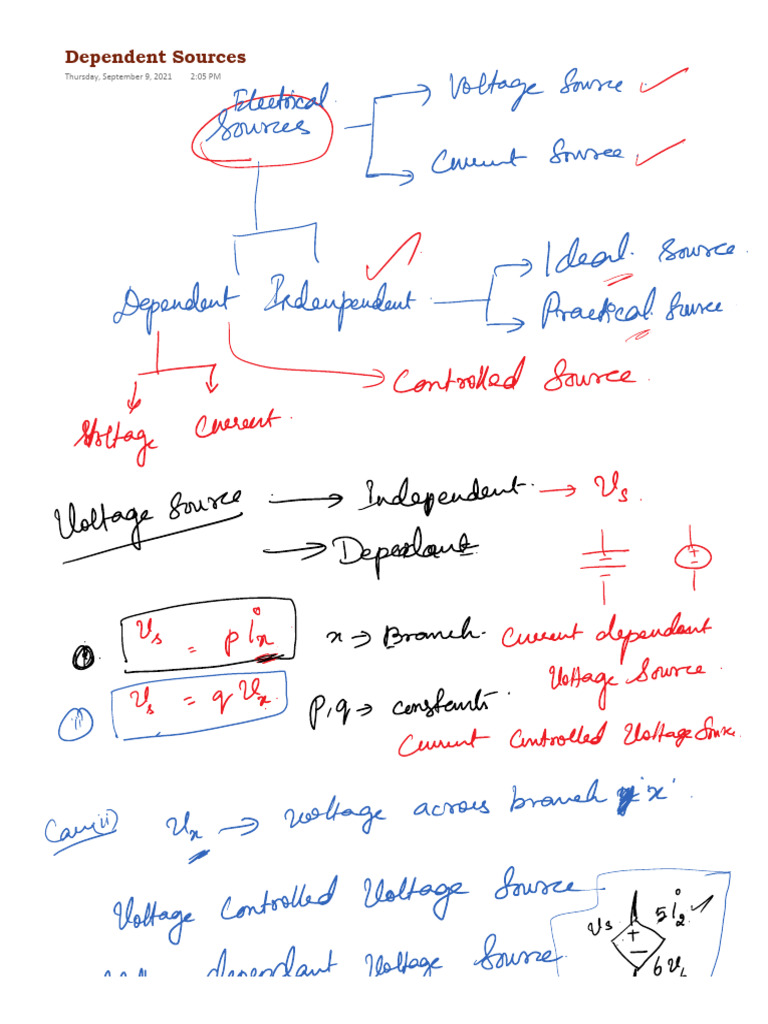 Dependent Sources
Thursday, September 9, 2021 2:05 PM
Electrical Sources
Voltage Source
Current Source
Dependent Independent
Ideal Source
Practical Source
Controlled Source
Voltage Current
Voltage Source → Independent → Vs
→ Dependant
(i) Vs = p ix x → Branch. Current dependant Voltage Source
(ii) Vs = q Vx p, q → constants
Current Controlled Voltage Source
Case (ii) Vx → Voltage across branch 'x'.
Voltage Controlled Voltage Source
dependant Voltage Source
Vs + − 5 i2